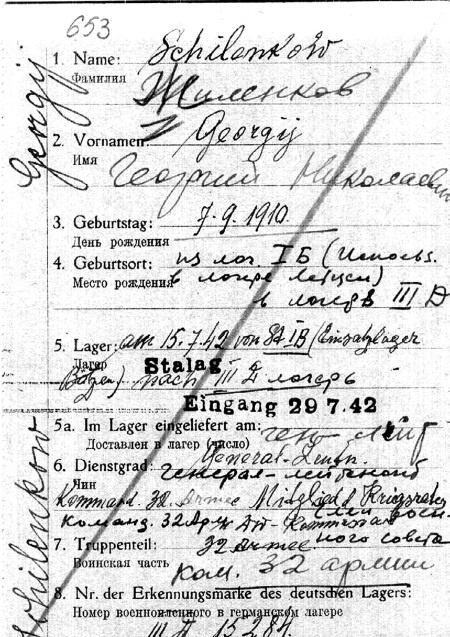 653
1. Name: Schilenkow
Фамилия Жиленков
2. Vornamen: Georgij
Имя Георгий Николаевич
3. Geburtstag: 7.9.1910.
День рождения
4. Geburtsort: из лаг. I Б (Использ.
Место рождения в лагере Летцен)
в лагерь III D
5. Lager: am 15.7.42 von St IB (Einsatzlager
Лагер Stalag
nach III D лагерь
Eingang 29 7.42
5a. Im Lager eingeliefert am: ген-лейт
Доставлен в лагер (число)
6. Dienstgrad: General-Leutn.
Чин генерал-лейтенант
Kommand. 32. Armee Mitglied d Kriegsrates
Команд. 32 Арм
7. Truppenteil: 32 Armee. ного совета
Воинская часть ком. 32 армии
8. Nr. der Erkennungsmarke des deutschen Lagers:
Номер военнопленного в германском лагере
Georgij
Schilenkow